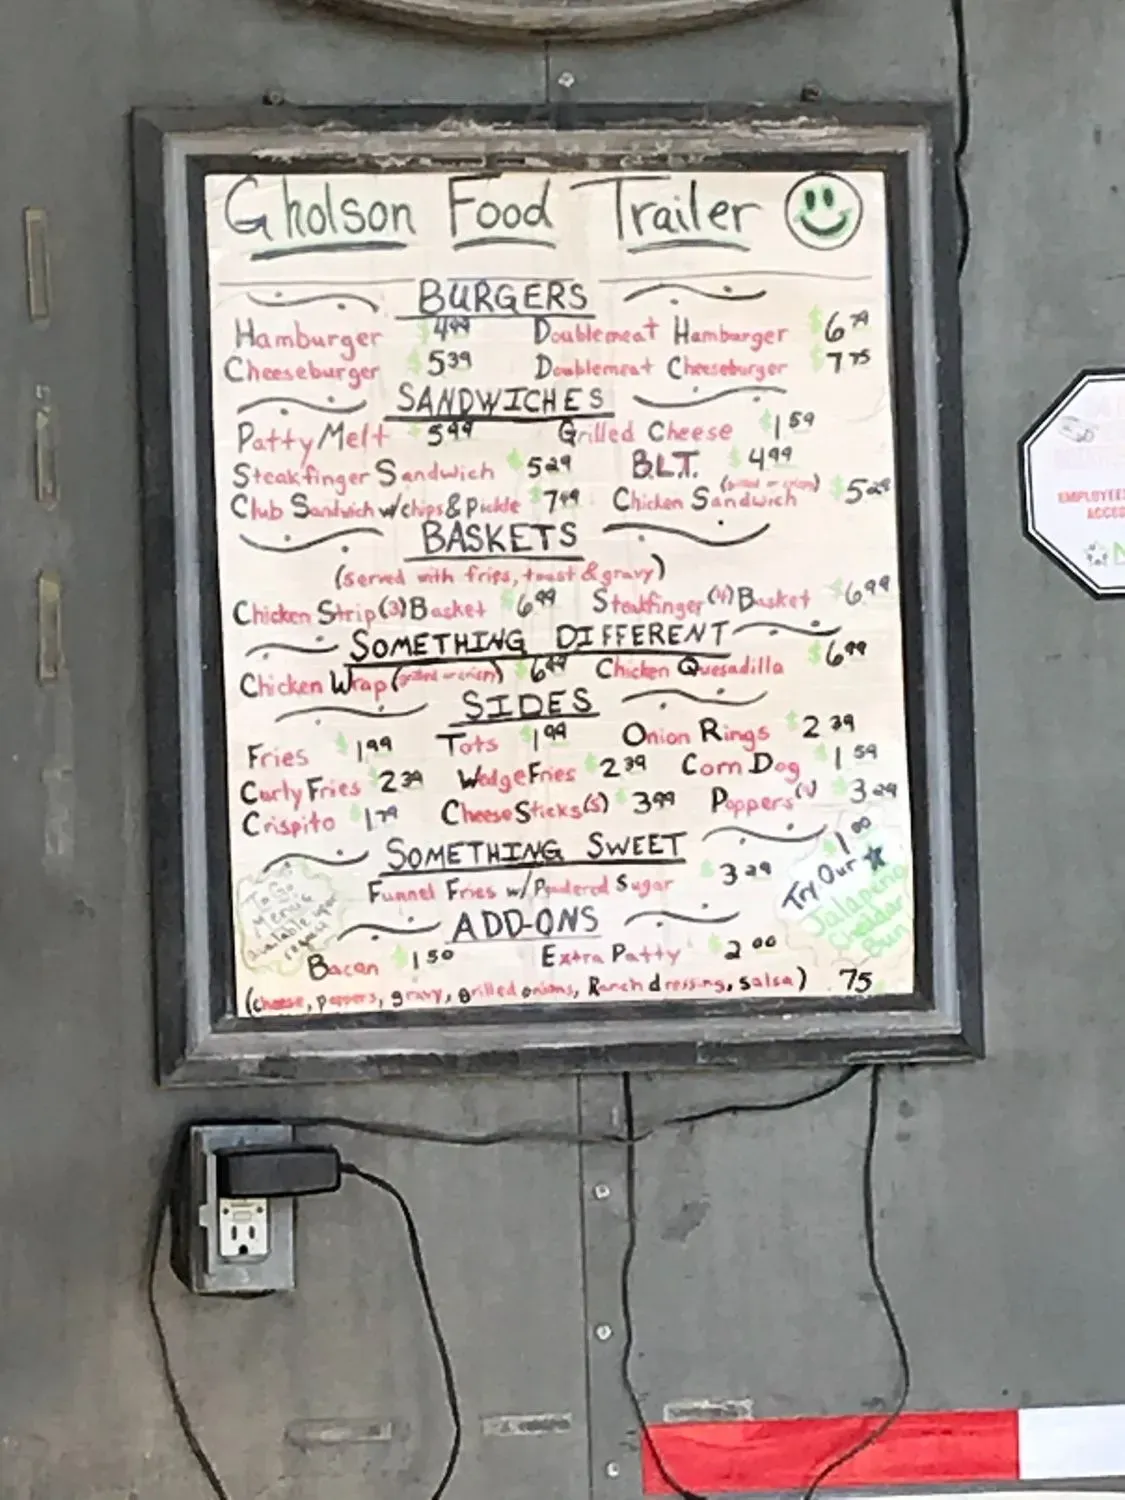 Gholson Food Trailer
BURGERS
Hamburger $4.99 Doublemeat Hamburger $6.79
Cheeseburger $5.39 Doublemeat Cheeseburger $7.75
SANDWICHES
Patty Melt $5.99 Grilled Cheese $1.59
Steakfinger Sandwich $5.29 B.L.T. $4.99
Club Sandwich w/chips & Pickle $7.49 Chicken Sandwich (grilled or crispy) $5.29
BASKETS
(served with fries, toast & gravy)
Chicken Strip (3) Basket $6.99 Steakfinger (4) Basket $6.99
SOMETHING DIFFERENT
Chicken Wrap (grilled or crispy) $6.49 Chicken Quesadilla $6.99
SIDES
Fries $1.99 Tots $1.99 Onion Rings $2.39
Curly Fries $2.39 Wedge Fries $2.39 Corn Dog $1.59
Crispito $1.79 Cheese Sticks (5) $3.99 Poppers $3.29
SOMETHING SWEET
Funnel Fries w/ Powdered Sugar $3.29
ADD-ONS
Bacon $1.50 Extra Patty $2.00
(cheese, peppers, gravy, grilled onions, Ranch dressing, salsa) .75
To Go
Menus
available upon
request
$1.00
Try Our
Jalapeno
Cheddar
Bun
EMPLOYEES